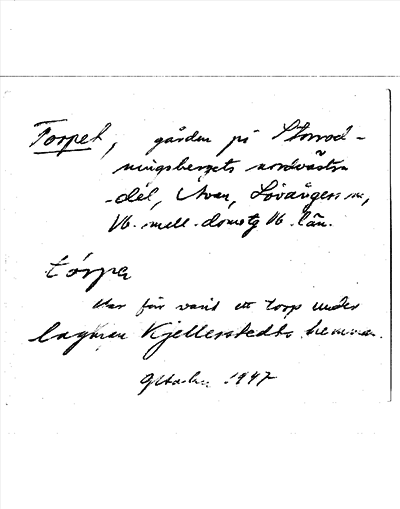 Torpet, gården på Storrod-
ningsbergets nordvästra
del, Avan, Lövångers sn,
Vb. mell. domsg Vb. län.
tórpa
Har för varit ett torp under
lagman Kjellerstedts hemman.
1947